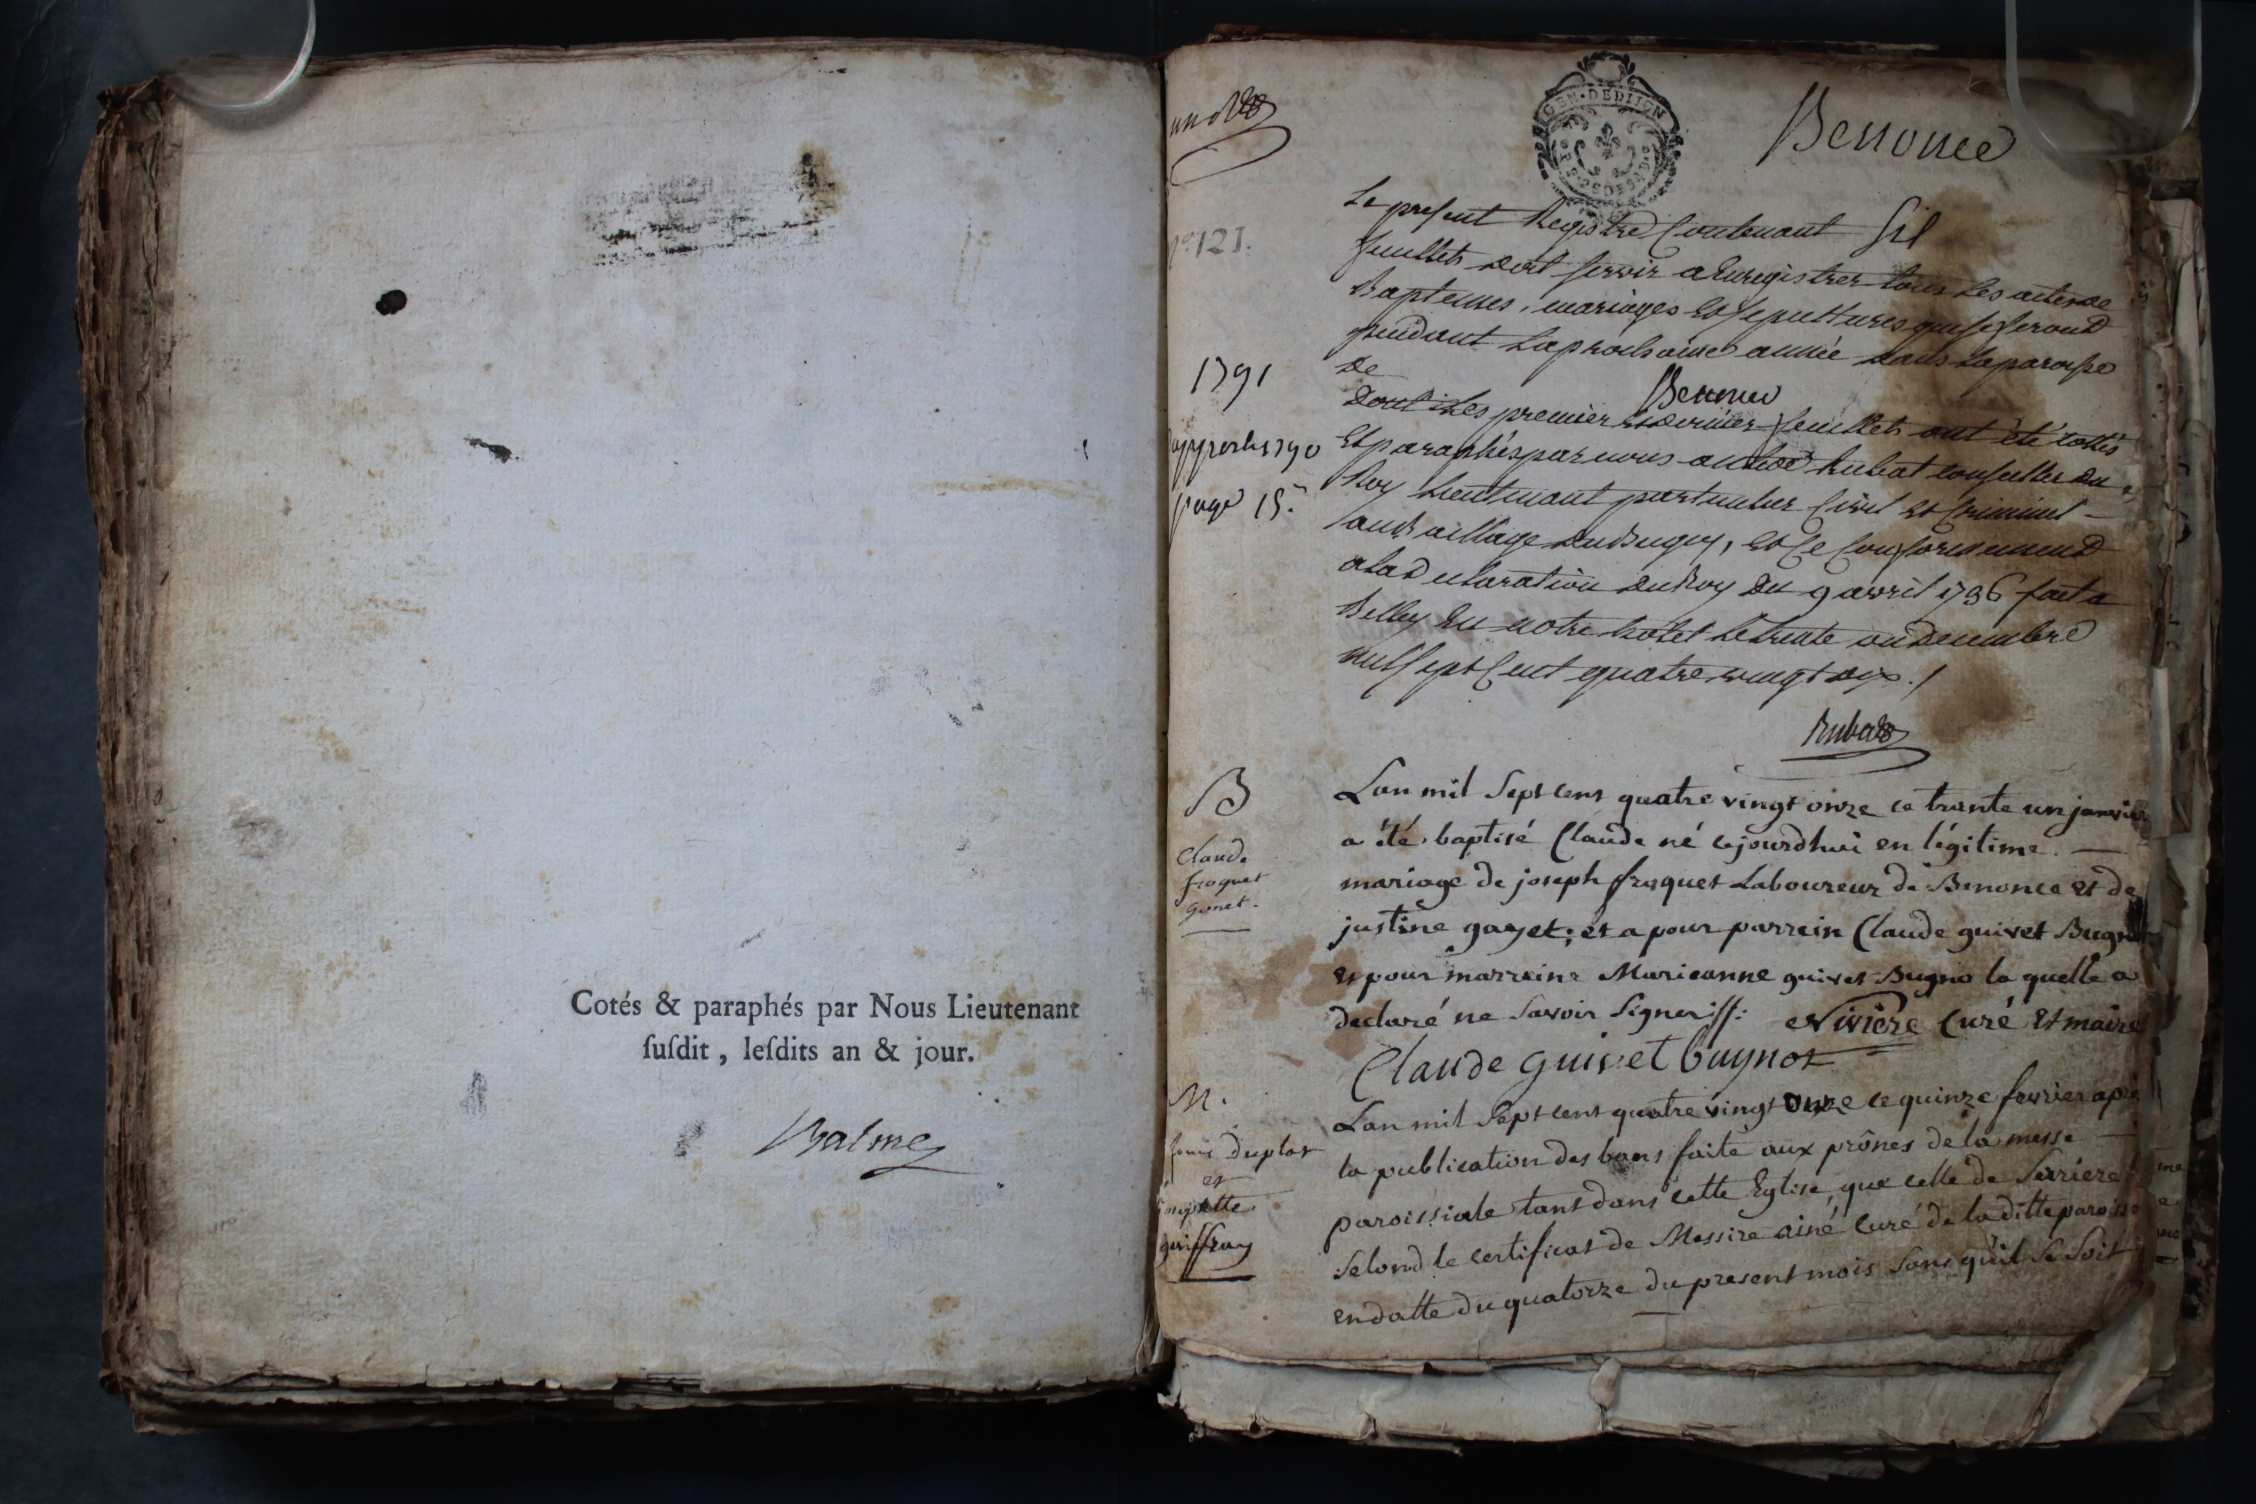 Cotés & paraphés par Nous Lieutenant
ſuſdit, leſdits an & jour.
Balme
GEN. DE DIJON
Benonce
N° 121.
Le present Registre Contenant six
feuillets doit servir a Enregistrer tous Les actes de
Baptemes, mariages Et sepultures qui se feront
pendant La prochaine année dans La paroisse
de Benonce
dont Les premier Et dernier feuillets ont été cottés
Et paraphés par nous Rubat conseiller du
Roy Lieutenant particulier Civil Et Criminel
au Bailliage du Bugey, Et Ce Conformement
a La Declaration du Roy du 9 avril 1736 fait a
Belley En notre hotel Le trente un decembre
mil sept Cent quatre vingt dix ./
Rubat
1791
1790
page 15.
B
Claude
froquet
gonet.
Lan mil sept cent quatre vingt onze ce trante un janvier
a été baptisé Claude né cejourdhui en légitime
mariage de joseph froquet Laboureur de Benonce et de
justine gayet; et a pour parrein Claude guivet Bugnot
et pour marreine Marieanne guivet Bugno la quelle a
declaré ne savoir signer ./:
Rivière Curé Et maire
Claude guivet bugnot
M.
Louis Duplat
et
josephtte
geriffray
Lan mil sept cent quatre vingt onze ce quinze fevrier apré
la publication des bans faite aux prônes de la messe
paroissiale tant dans cette Eglise, que celle de Serriere
selond le certificat de Messire ainé Curé de la ditte paroisse
en datte du quatorze du present mois sans qu'il se soit